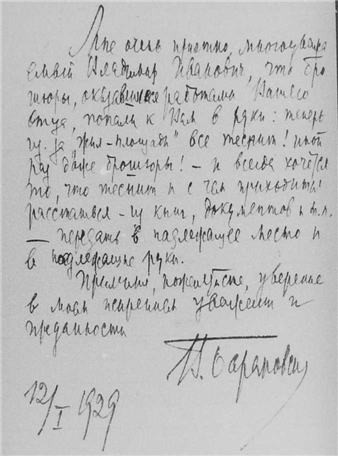 Мне очень приятно, многоуважа
емый Владимир Иванович, что бро
шюры, оказавшиеся работами Вашего
отца, попали к Вам в руки: теперь
из-за „жил-площади" все теснит! иной
раз даже брошюры! – и всегда хочется
то, что теснит и с чем приходится
расстаться – из книг, документов и т.п.
– передать в надлежащее место и
в надлежащие руки.
Примите, пожалуйста, уверение
в моем искреннем уважении и
преданности
Барановский
12/I 1929